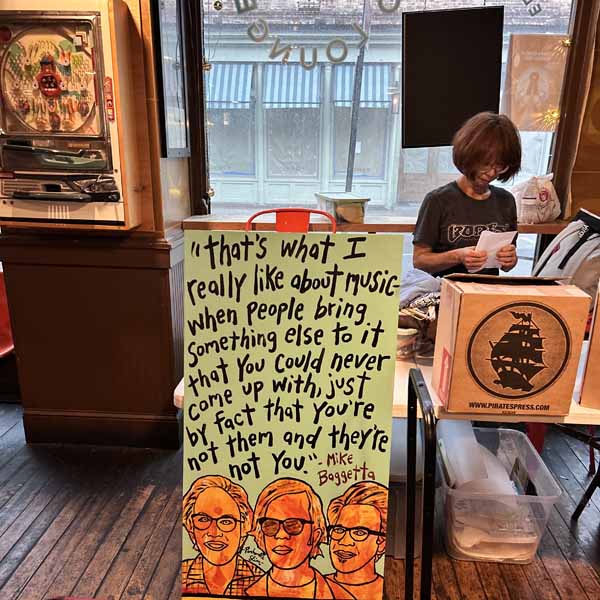 LOUNGE
"that's what I
really like about music-
when people bring
something else to it
that you could never
come up with, just
by fact that you're
not them and they're
not you."
- Mike
Baggetta
WWW.PIRATESPRESS.COM